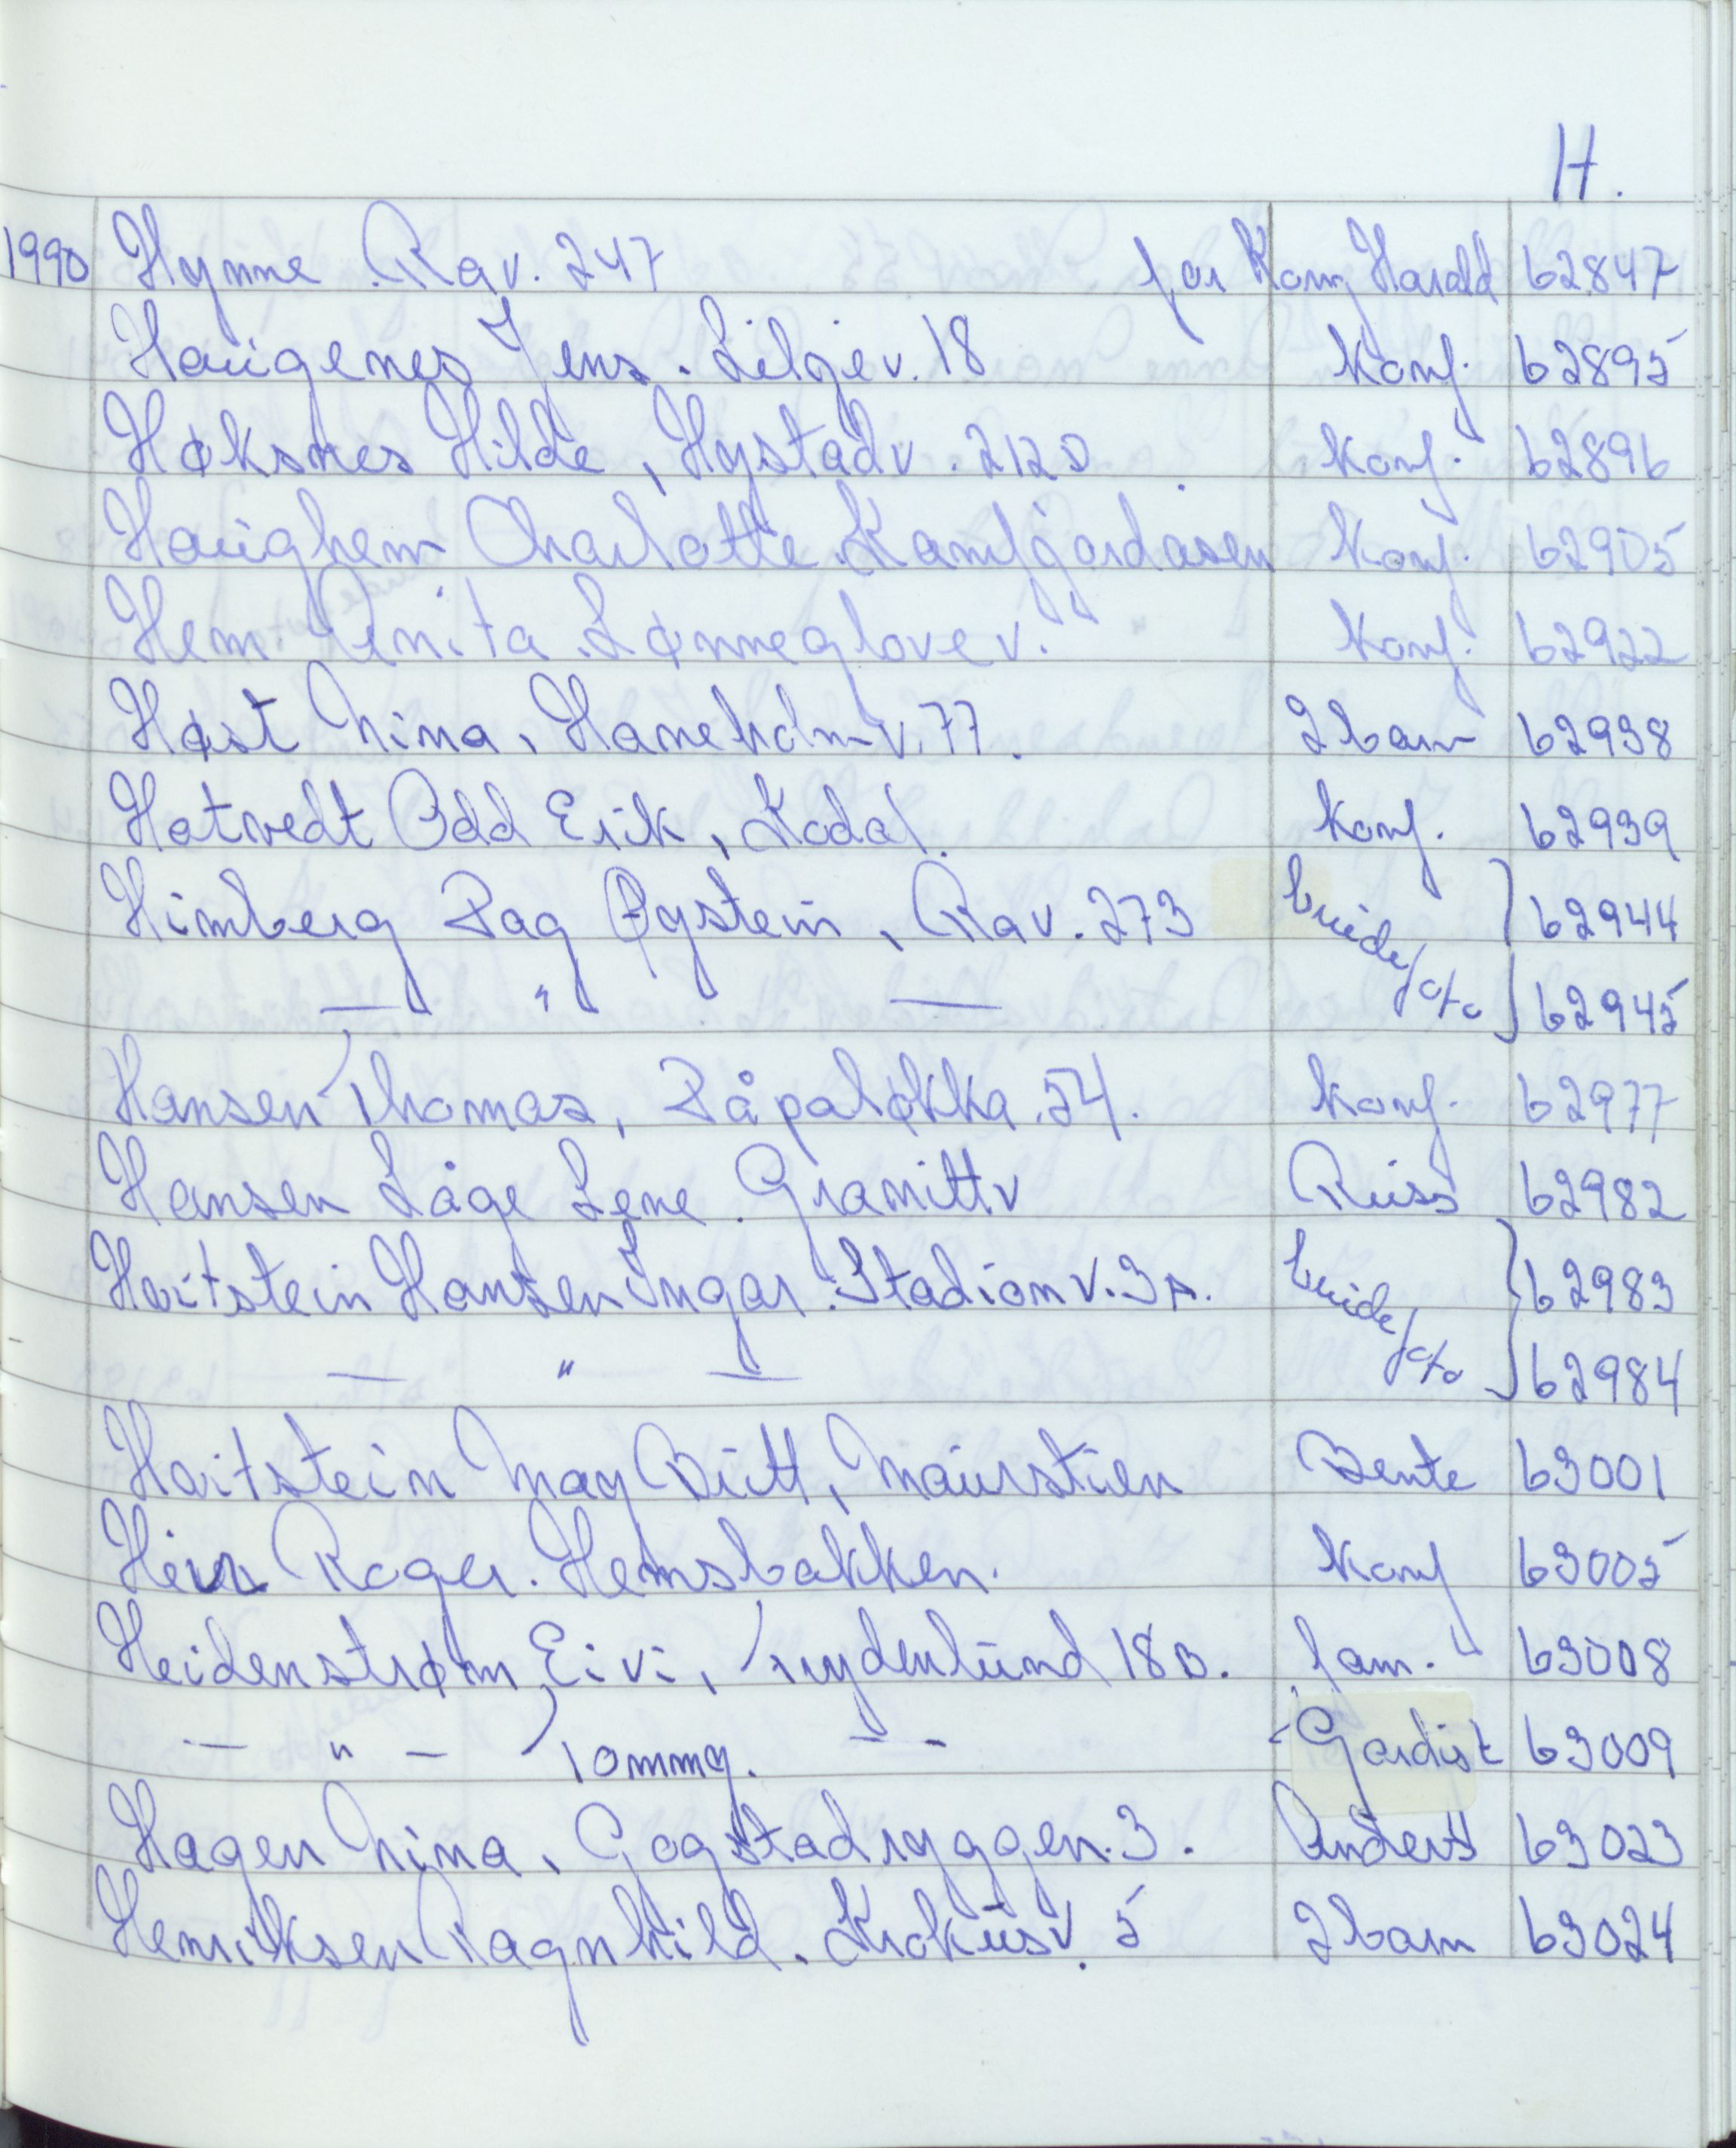 H.
1990 Hynne Rav. 247 for Kong Harald 62847
Haugenes Jens. Liljev. 18 Konf. 62895
Høksnes Hilde, Hystadv. 212D Konf. 62896
Haughem Charlotte Kamfjordasen Konf. 62905
Hem Anita Lønneglovev. Konf. 62922
Høst Nina, Haneholmv. 77. 2 barn 62938
Hotvedt Odd Erik, Kodal. Konf. 62939
Himberg Dag Øystein, Rav. 273 brude/foto 62944
— " — 62945
Hansen Thomas, Dåpaløkka. 54. Konf. 62977
Hansen Låge Lene. Granittv Russ 62982
Haitstein Hansen Ingar. Stadionv. 3A. brude/foto 62983
— " — 62984
Haitstein May Britt, Maurstien Bente 63001
Hein Roger. Hemsbakken. Konf 63005
Heidenstrøm Eivi, Nydenlund 18B. fam. 63008
— " — Tommy. — - Gardist 63009
Hagen Nina, Gogstadryggen. 3. Anders 63023
Henriksen Ragnhild. Krokusv. 5 2 barn 63024